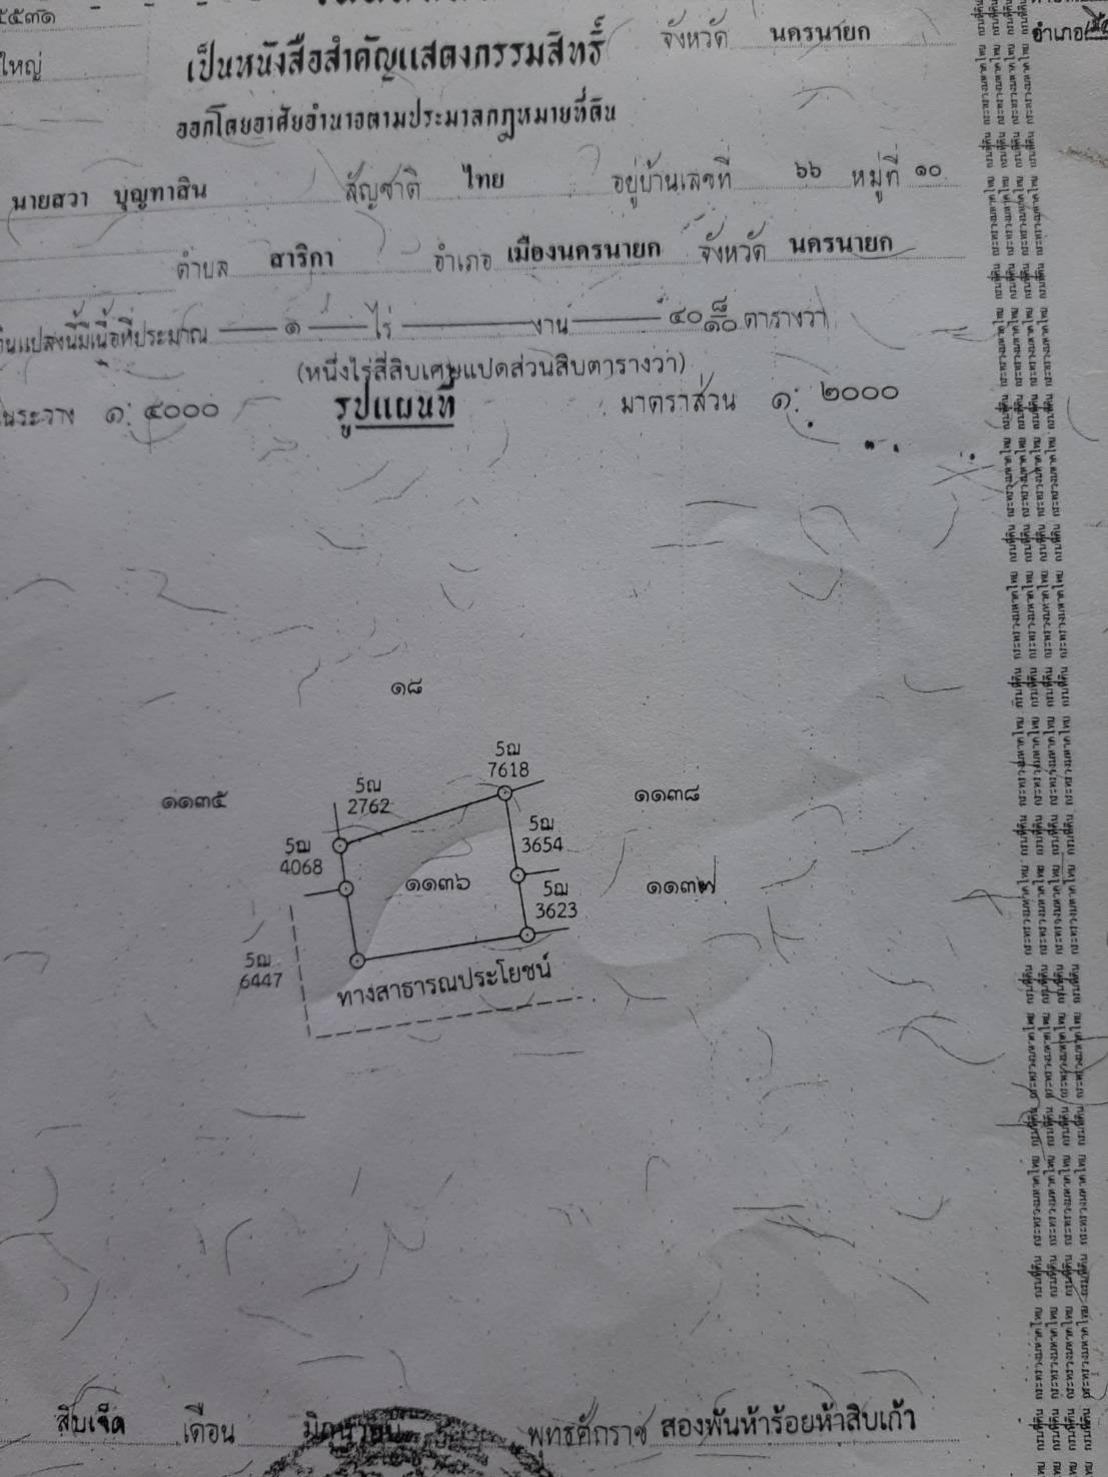 ๕๕๓๑
จังหวัด นครนายก
อำเภอ
ใหญ่
เป็นหนังสือสำคัญแสดงกรรมสิทธิ์
ออกโดยอาศัยอำนาจตามประมวลกฎหมายที่ดิน
นายสวา บุญทาสิน สัญชาติ ไทย อยู่บ้านเลขที่ ๖๖ หมู่ที่ ๑๐
ตำบล สาริกา อำเภอ เมืองนครนายก จังหวัด นครนายก
ินแปลงนี้มีเนื้อที่ประมาณ ๑ ไร่ งาน ๔๐ ๘/๑๐ ตารางวา
(หนึ่งไร่สี่สิบเศษแปดส่วนสิบตารางวา)
ในระวาง ๑: ๔๐๐๐ รูปแผนที่ มาตราส่วน ๑: ๒๐๐๐
๑๘
5ฌ
7618
๑๑๓๕
5ฌ
2762
๑๑๓๘
5ฌ
3654
5ฌ
4068
๑๑๓๖
๑๑๓๗
5ฌ
3623
5ฌ
6447
ทางสาธารณประโยชน์
สิบเจ็ด เดือน มิถุนายน พุทธศักราช สองพันห้าร้อยห้าสิบเก้า